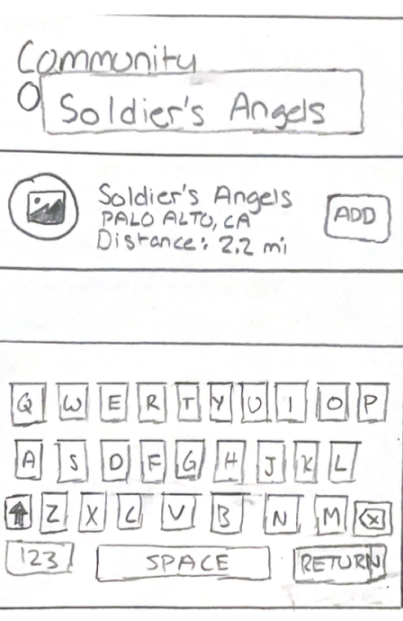 Community
Soldier's Angels
Soldier's Angels
PALO ALTO, CA
Distance: 2.2 mi
ADD
Q W E R T Y U I O P
A S D F G H J K L
Z X C V B N M
123 SPACE RETURN